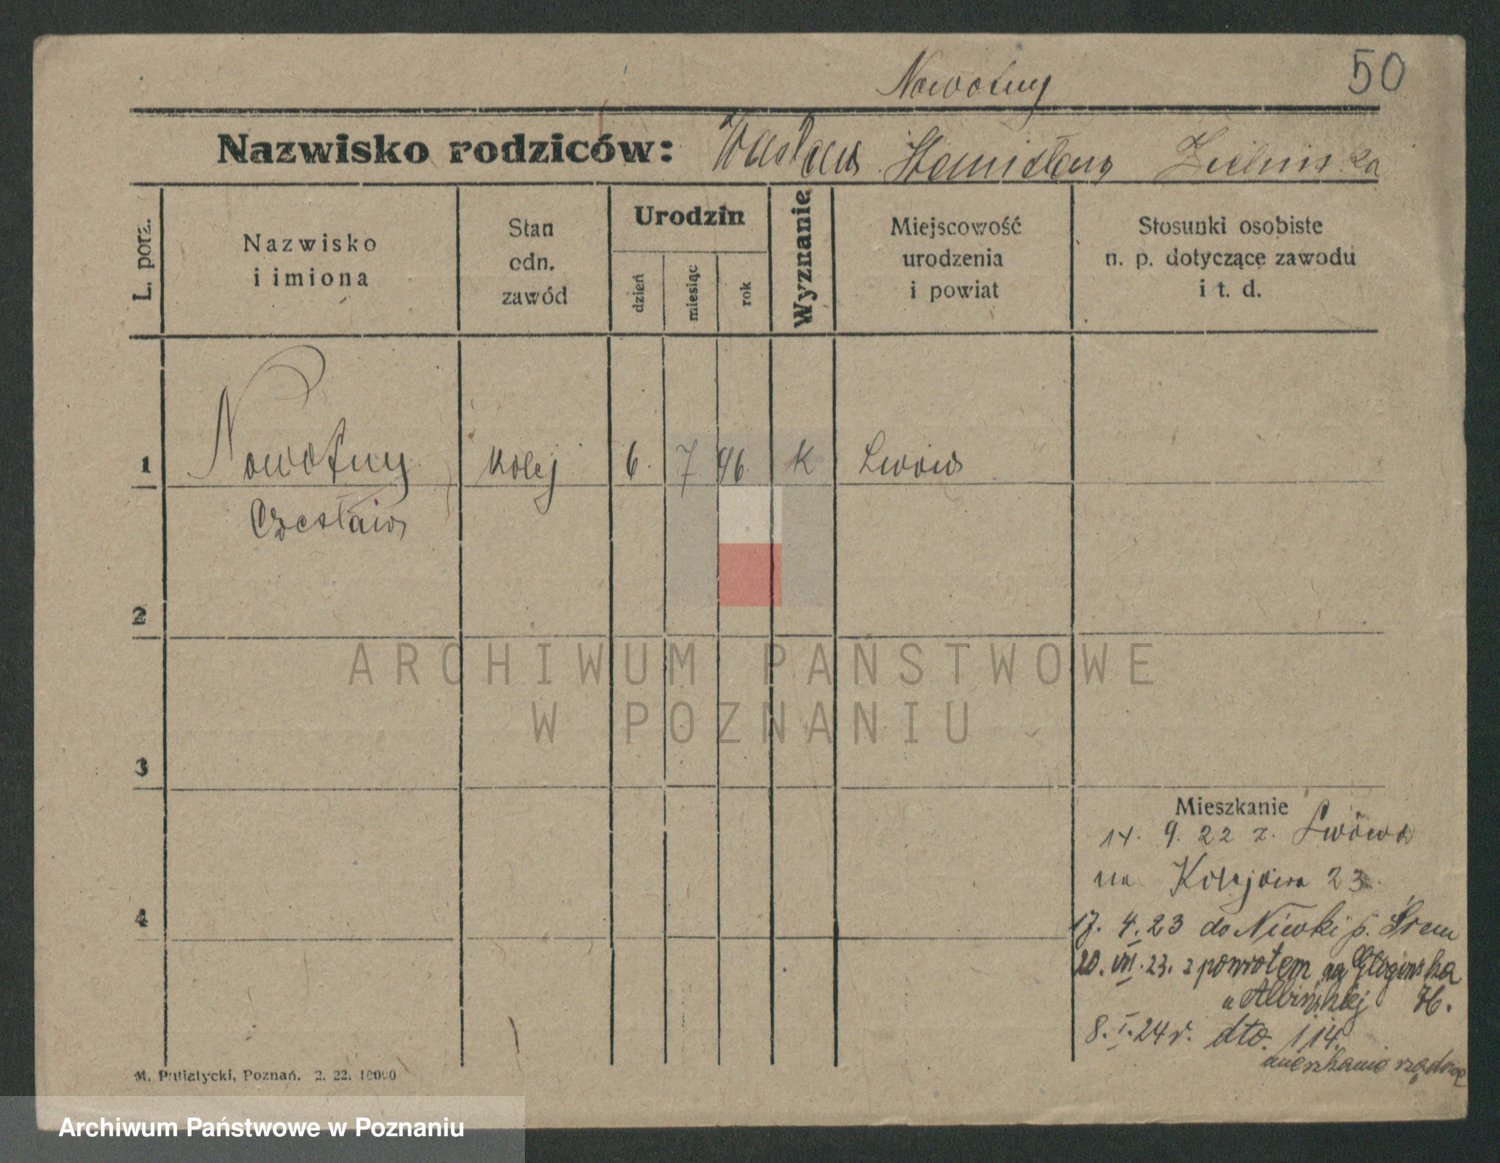 50
Nowotny
Nazwisko rodziców: Wacław Stanisława Zielińska
L. porz.
Nazwisko
i imiona
Stan
odn.
zawód
Urodzin
dzień
miesiąc
rok
Wyznanie
Miejscowość
urodzenia
i powiat
Stosunki osobiste
n. p. dotyczące zawodu
i t. d.
1 Nowotny kolej 6. 7 96. K Lwów
Czesław
2
ARCHIWUM PAŃSTWOWE
W POZNANIU
3
Mieszkanie
14. 9. 22 z. Lwowa
na Kolejowa 23.
4
17. 4. 23 do Niwki p. Śrem
20. VII. 23. z powrotem na
u
8. I. 24 r. dto. 114.
mieszkanie rządowe
M. Putiatycki, Poznań. 2. 22. 10000
Archiwum Państwowe w Poznaniu